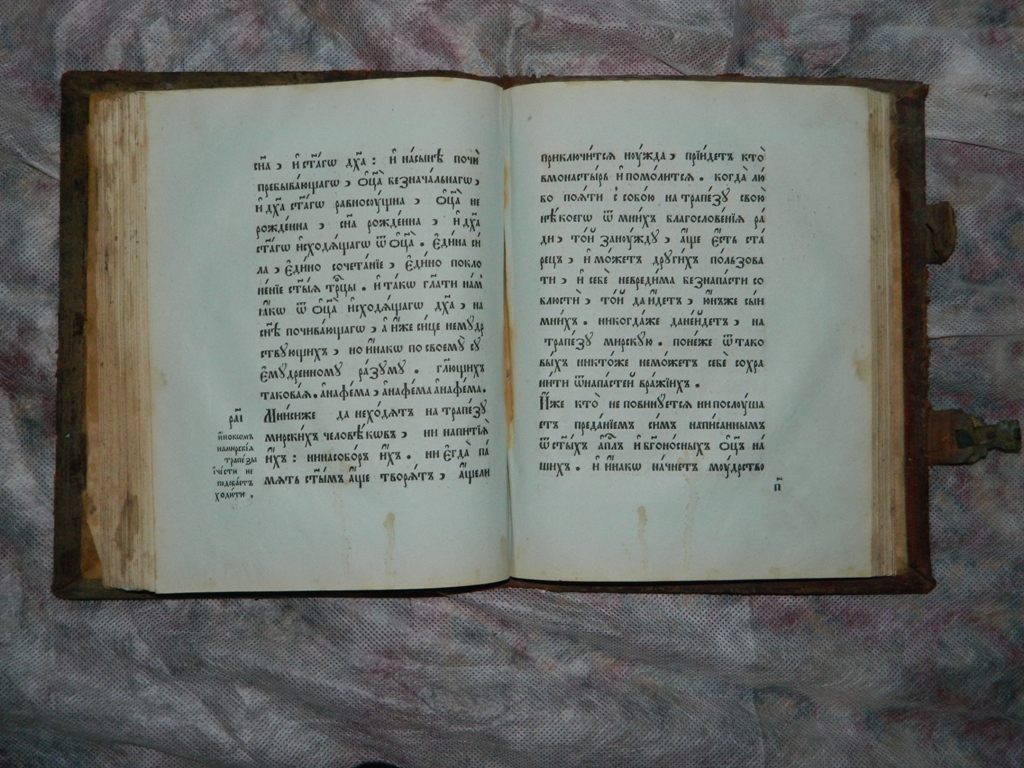 сн҃а , и҆ ст҃а́гѡ дх҃а : и҆ на́сынѣ почи
пребыва́ющагѡ , ѻ҆ц҃а̀ безнача́льнагѡ ,
и҆ дх҃а ст҃а́гѡ равносо́ущна , ѻ҆ц҃а̀ не
рожде́нна , сн҃а рожде́нна , и҆ дх҃а
ст҃а́гѡ и҆сходѧ́щагѡ ѿ ѻ҆ц҃а̀ . є҆ди́на си́
ла , є҆ди́но сочета́нїе , є҆ди́но покло
не́нїе ст҃ы́ѧ тр҃цы . и҆ та́кѡ гл҃ати на́м
ꙗ҆́кѡ ѿ ѻ҆ц҃а̀ и҆сходѧ́щагѡ дх҃а , на
сн҃ѣ почива́ющагѡ , а҆ и҆́же си́це нему́др
ствующихъ , но и҆на́кѡ по своему̀ су
є҆му́дренному ра́зуму . гл҃ющихъ
такова́ѧ . а҆на́фема , а҆на́фема а҆на́фема .
Мни́сиже да не хо́дѧтъ на трапе́зу
мирски́хъ человѣ́кѡвъ , ни напи́тїѧ
и҆́хъ : ни насобо́ръ и҆́хъ . ни є҆гда̀ па́
мѧть ст҃ы́мъ а҆́ще творѧ́тъ , а҆́щели
рл҃і
и҆́нокомъ
намирскі́ѧ
трапе́зы
і҆че́сти не
подоба́етъ
ходи́ти .
приключи́тсѧ ноу́жда , прїи́детъ кто̀
вмонасты́рь и҆ помо́литсѧ . когда̀ лю́
бо поѧ́ти с собо́ю на трапе́зу свою̀
нѣ́коего ѿ мни́хъ благослове́нїѧ ра́
ди , то́й заноу́жду , а҆́ще є҆́сть ста́
рецъ , и҆ мо́жетъ други́хъ по́льзова
ти , и҆ себѐ невреди́ма безнапа́сти со
блюстѝ , то́й да и҆́детъ , ю҆́нъже сы́и
мни́хъ . никогда́же дане́и҆детъ , на
трапе́зу мирску́ю . поне́же ѿ тако
вы́хъ никто́же немо́жетъ себѐ сохра
ни́ти ѿнапа́стей вра́жїихъ .
И҆́же кто̀ не повину́етсѧ ни послу́ша
етъ преда́нїемъ си́мъ напи́саннымъ
ѿ ст҃ы́хъ а҆пл҃ъ и҆ бг҃оно́сныхъ ѻ҆ц҃ъ на́
шихъ . и҆ и҆на́кѡ начне́тъ моу́дрство
п҃